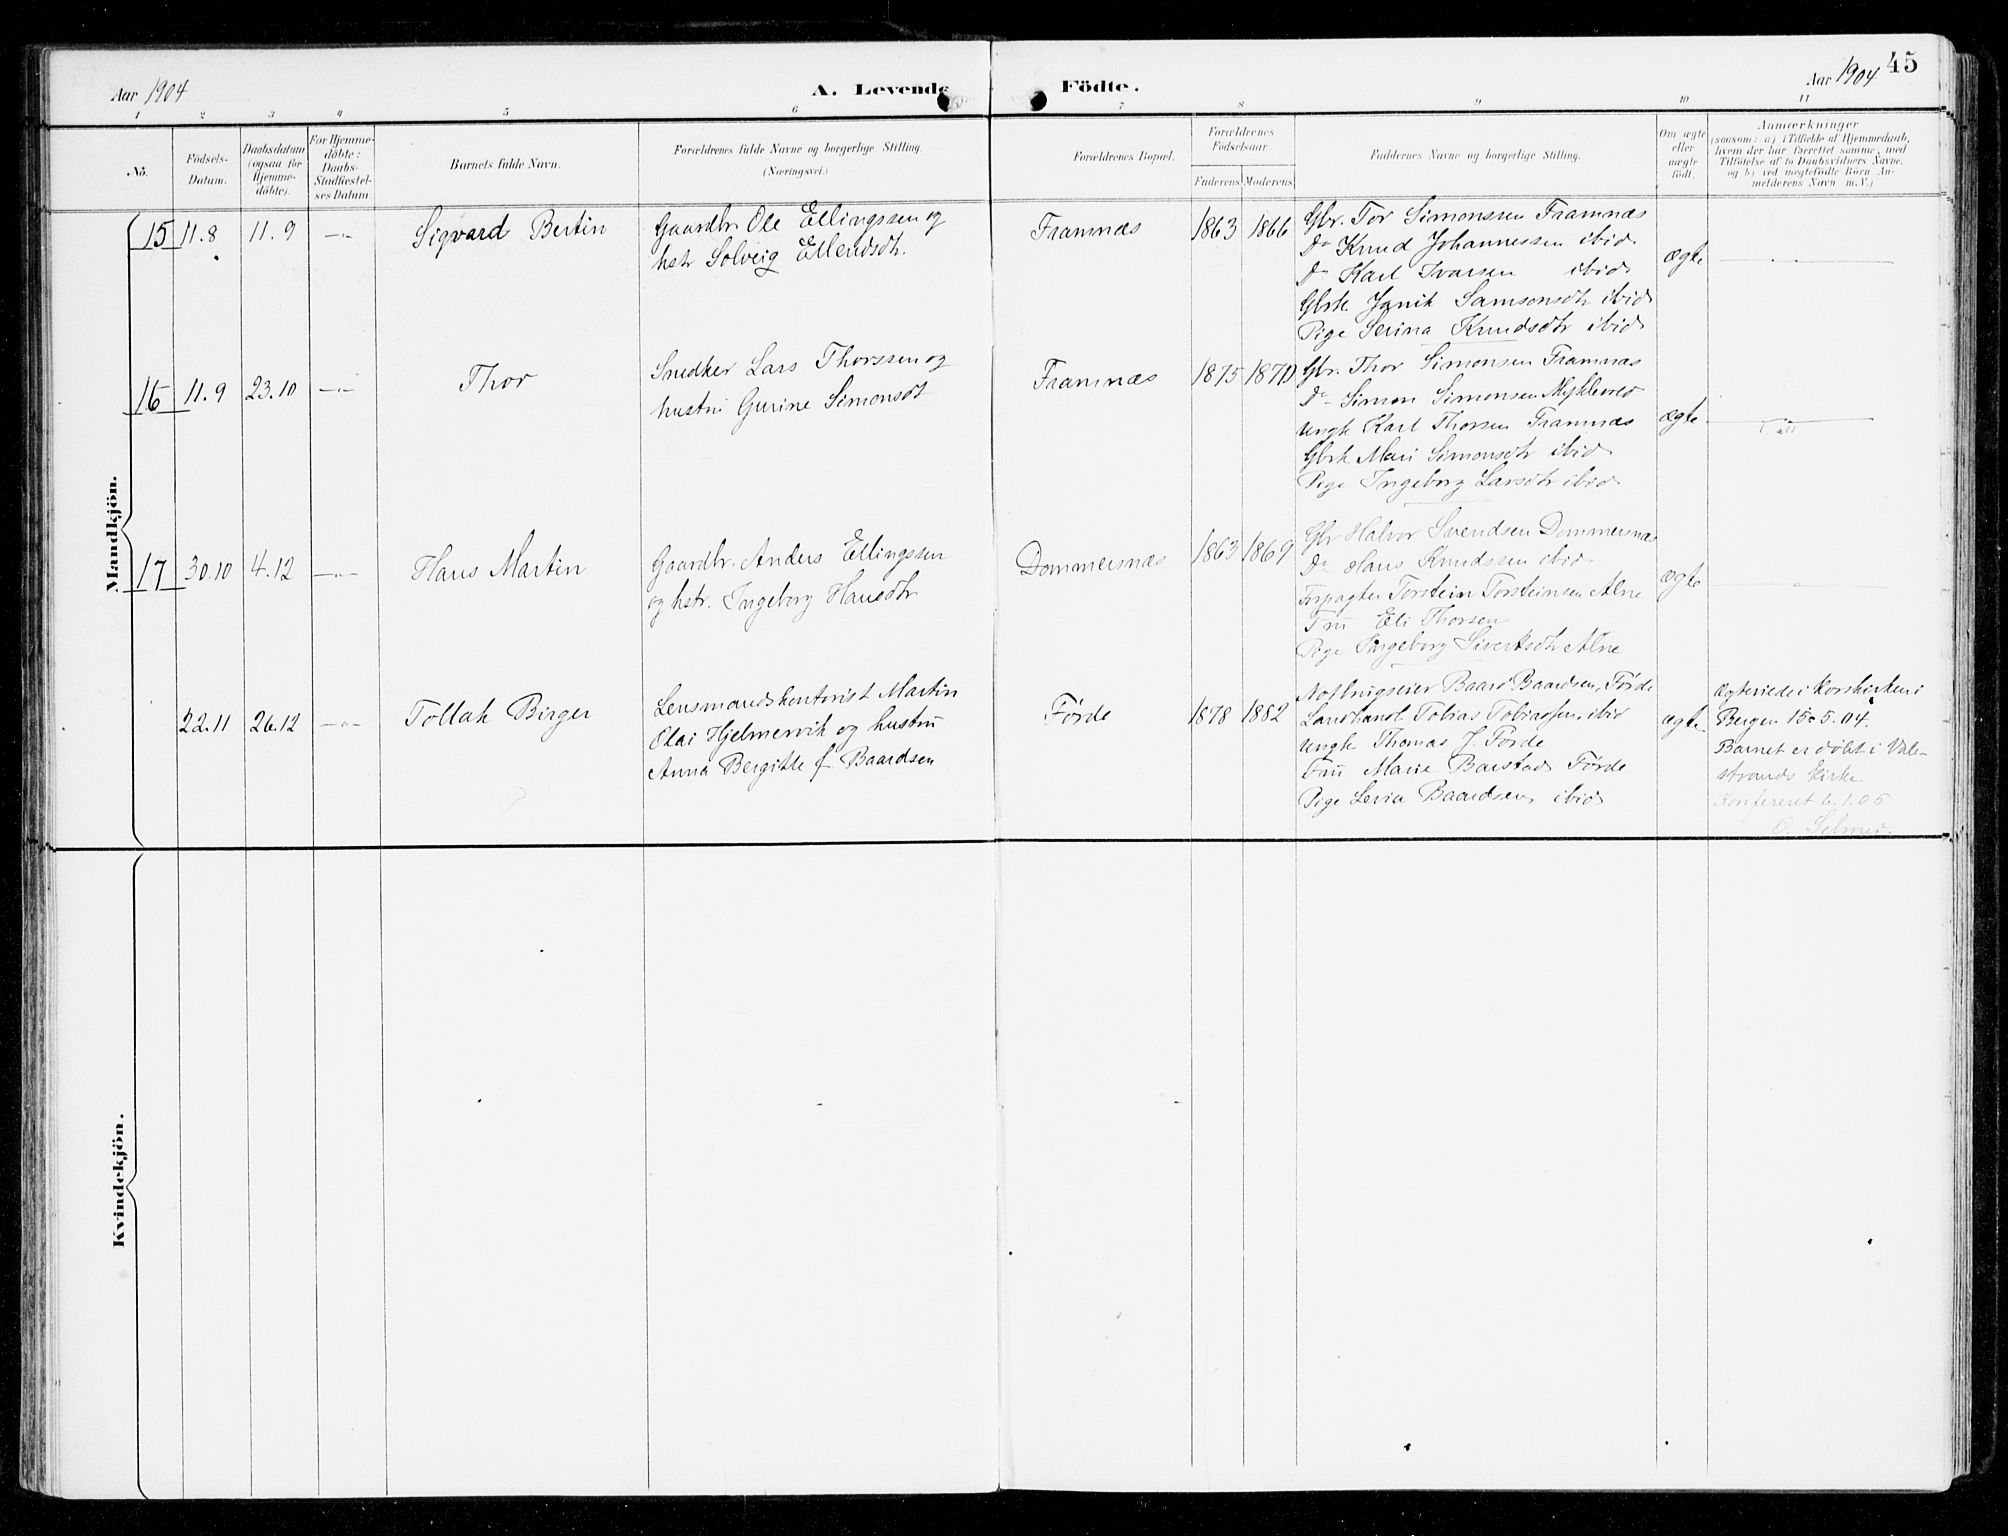 45
Aar 1904
A. Levende Födte.
Aar 1904
1 2 3 4 5 6 7 8 9 10 11
No.
Födsels-
Datum.
Daabsdatum
(ogsaa for
Hjemme-
döbte).
For Hjemme-
döbte:
Daabs-
Stadfæstel-
ses Datum.
Barnets fulde Navn.
Forældrenes fulde Navne og borgerlige Stilling.
(Næringsvei.)
Forældrenes Bopæl.
Forældrenes
Fødselsaar.
Faderens. Moderens.
Faddernes Navne og borgerlige Stilling.
Om ægte
eller
uægte
födt.
Anmærkninger
(saasom: a) i Tilfælde af Hjemmedaab,
hvem der har forrettet samme, med
Tilföielse af to Daabsvidners Navne,
og b) ved uægtefödte Börn An-
melderens Navn m.V.)
Mandkjön.
15 11.8 11.9 Sigvard Bertin
Gaardbr. Ole Ellingssen og
hstr Solveig Ellendsdtr.
Framnæs 1863 1866
Gbr. Tor Simonssen Framnæs
Do Knud Johannessen ibid
Do Karl Ivarsen ibid
Gbrk Janik Samsonsdtr ibid
Pige Serina Knudsdtr ibid
ægte
16 11.9 23.10 Thor
Snedker Lars Thorssen og
hustru Gurine Simonsdt
Framnæs 1875 1870
Gbr. Thor Simonsen Framnæs
Do Simon Simonsen
Ungk Karl Thorsen Framnæs
Gbrk Mari Simonsdtr ibid
Pige Ingeborg Larsdtr ibid
ægte
17 30.10 4.12 Hans Martin
Gaardbr. Anders Ellingssen
og hstr. Ingeborg Hansdtr
Dommersnæs 1863 1869
Gbr Halvor Svendsen Dommersnæs
Do Hans Knudssen ibid
Forpagter Torstein Torsteinsen Alne
Fru Eli Thorsen
Pige Ingeborg Sivertsdtr Alne
ægte
22.11 26.12 Tollak Birger
Lensmandskontorist Martin
Olai Hjelmervik og hustru
Anna Bergitte f. Baardsen
Førde 1878 1882
Baard Baardsen, Førde
Landhandl. Tobias Tobiassen, ibid
Ungk Thomas J. Førde
Fru Marie Barstad Førde
Pige Levia Baardsen ibid
ægte
Ægteviede i Korskirken i
Bergen 15-5.04.
Barnet er døbt i Vale-
strands kirke
Konfereret 1.05
Selmer
Kvindekjön.